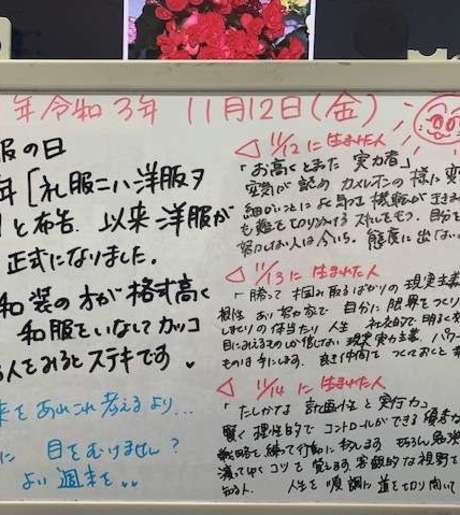 年 令和3年 11月12日(金)
服の日
年[礼服ニハ洋服ヲ
」と布告. 以来 洋服が
正式になりました。
和装の方が格式高く
和服をいなしてカッコ
る人をみるとステキです
来をあれこれ考えるより...
に 目をむけません?
よい週末を
11/12 に生まれた人
「お高くとまった 実力者」
変幻が認め カメレオンの様に変
細かいことに
も難を切りぬける
努力しない人は今いち。態度に出さない
11/13 に生まれた人
「勝って掴み取るばかりの現実主義
根性あり努力家で 自分に限界をつくり
の体当たり人生 社交的で明るく
目にみえるものしか信じない現実実力主義、パワー
ものは手にします。良き仲間をつくっておくと
11/14 に生まれた人
「たしかな 計画性と実行力」
賢く理性的でコントロールができる優秀な
戦略を練って行動に移します。もちろん勉強
覚えます。客観的な視野を
知る人. 人生を順調に道を切り開いて